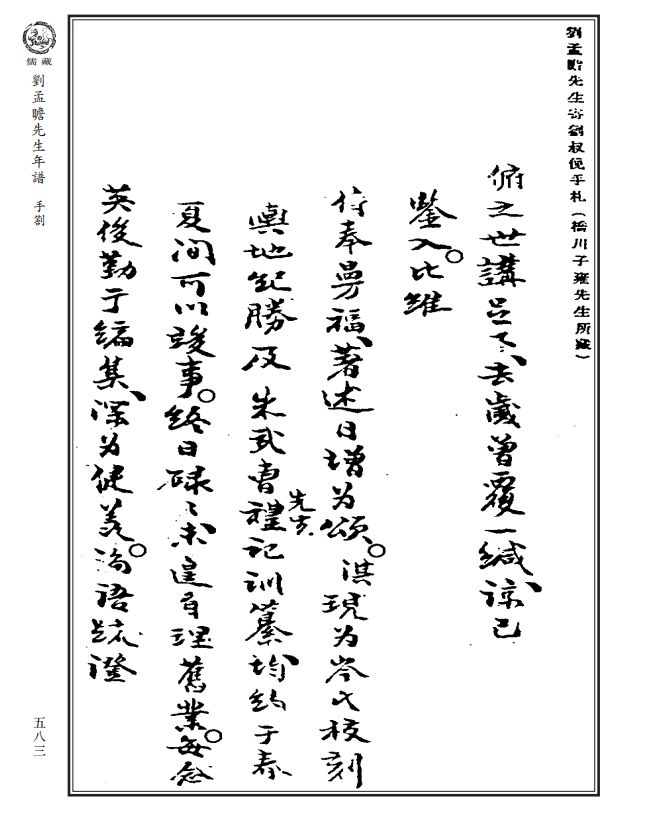 劉孟瞻先生寄劉叔俛手札（橋川子雍先生所藏）
俯之世講足下、去歲曾覆一緘、諒已
鑒入。比維
侍奉曼福、著述日增為頌。淇現為岑氏校刻
輿地紀勝及朱武曹先生禮記訓纂、均約于春
夏間可以竣事。終日碌〻、未遑自理舊業。每念
英俊勤于編集、深為健羨。論語疏證
儒藏
劉孟瞻先生年譜 手劄
五八三